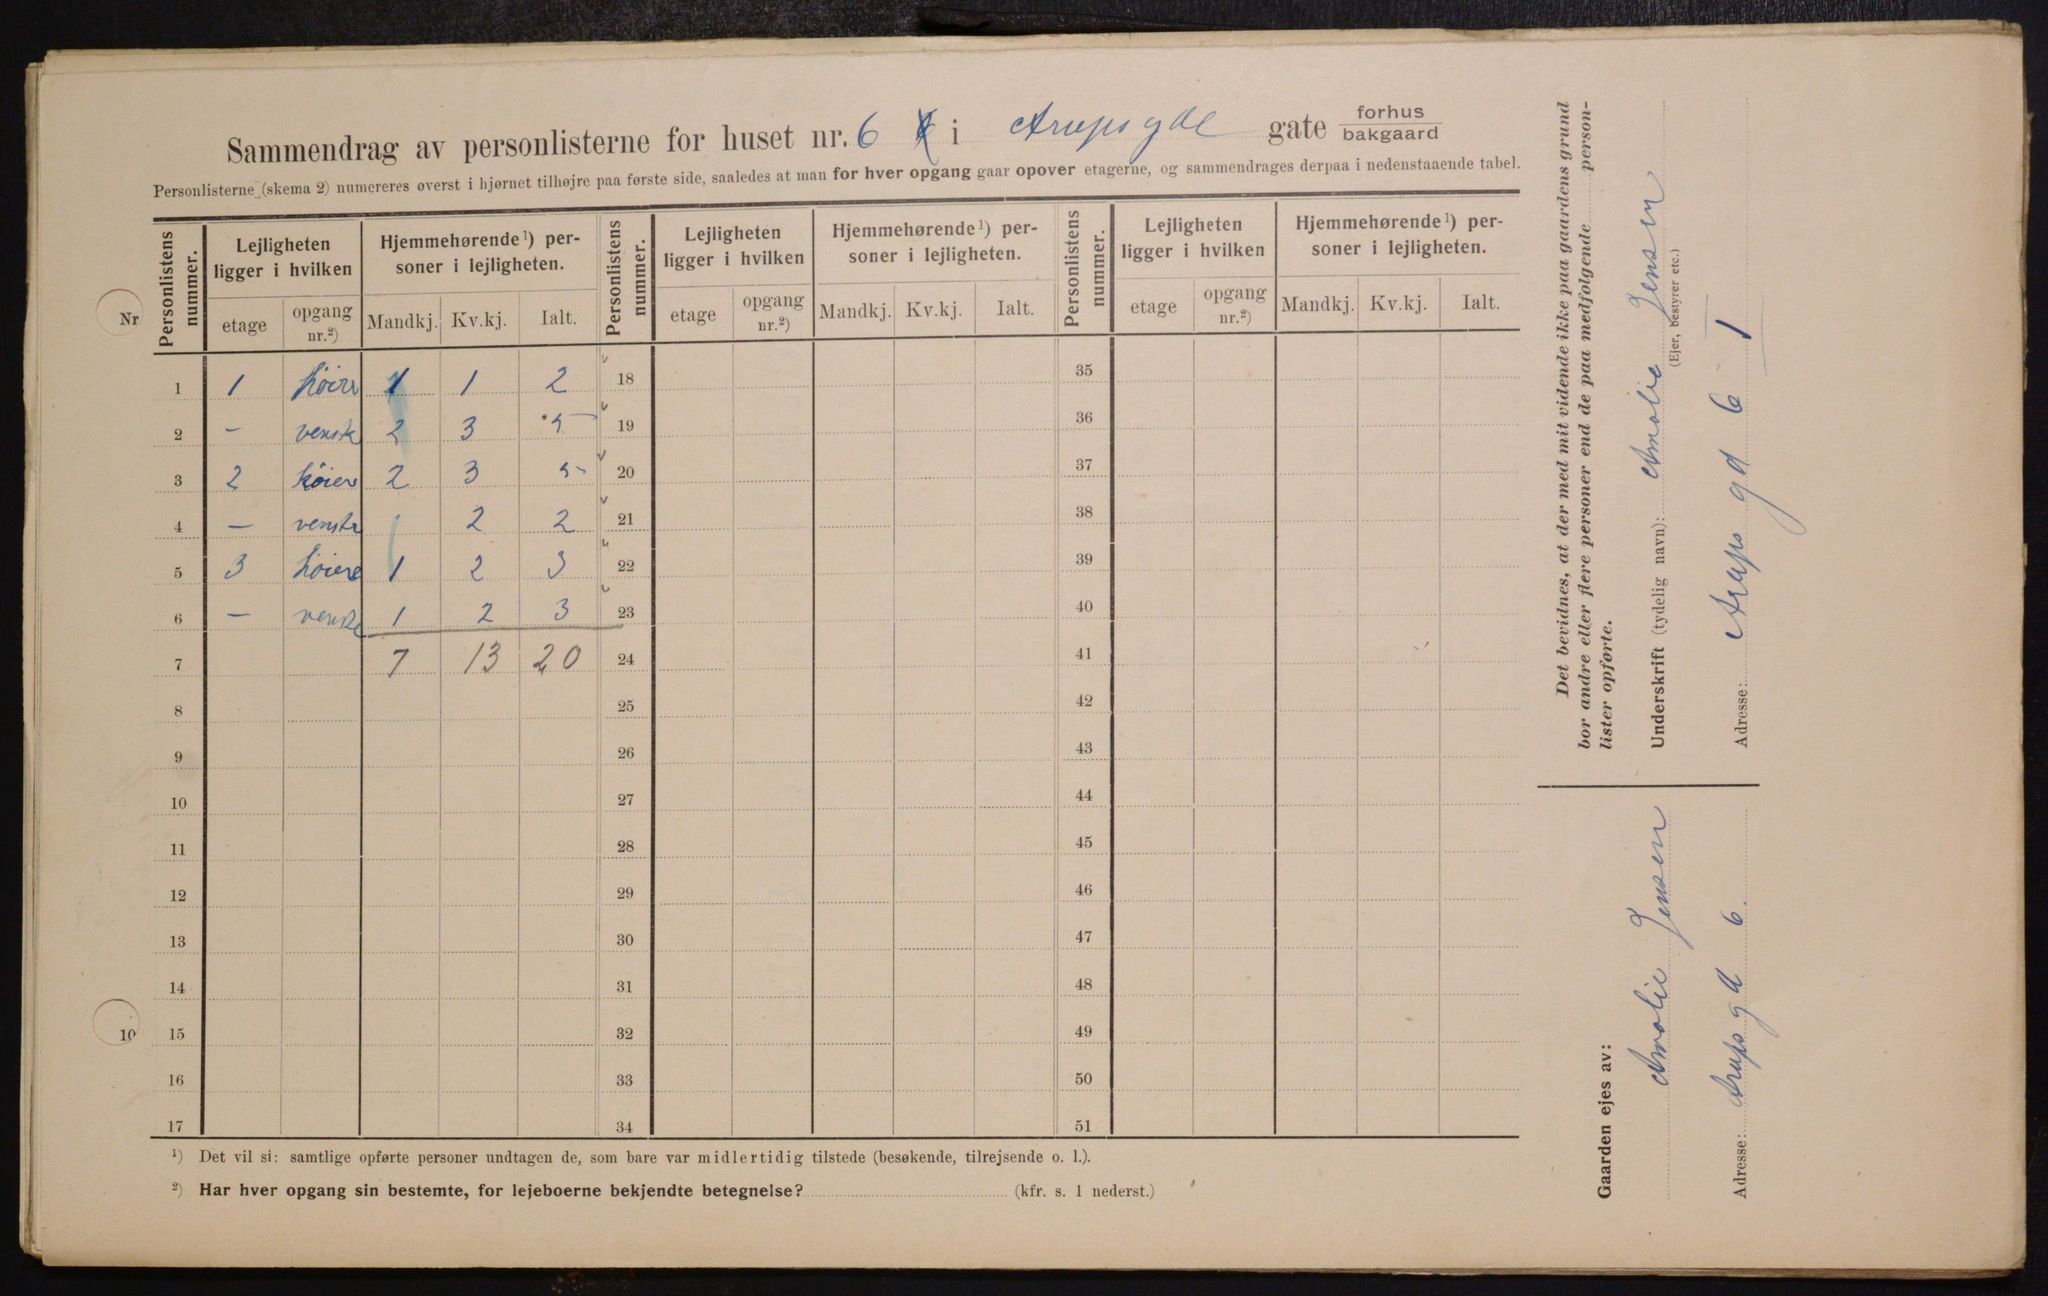 Sammendrag av personlisterne for huset nr. 6 i Arupsgde gate forhus bakgaard
Personlisterne (skema 2) numereres øverst i hjørnet tilhøjre paa første side, saaledes at man for hver opgang gaar opover etagerne, og sammendrages derpaa i nedenstaaende tabel.
Personlistens nummer. Lejligheten ligger i hvilken Hjemmehørende¹) personer i lejligheten. Personlistens nummer. Lejligheten ligger i hvilken Hjemmehørende¹) personer i lejligheten. Personlistens nummer. Lejligheten ligger i hvilken Hjemmehørende¹) personer i lejligheten.
Nr
etage opgang nr.²) Mandkj. Kv.kj. Ialt. etage opgang nr.²) Mandkj. Kv.kj. Ialt. etage opgang nr.²) Mandkj. Kv.kj. Ialt.
1 1 høire 1 1 2 18 35
2 – venst 2 3 5 19 36
3 2 høier 2 3 5 20 37
4 – venstr 2 2 21 38
5 3 høiere 1 2 3 22 39
6 – venst 1 2 3 23 40
7 7 13 20 24 41
8 25 42
9 26 43
10 27 44
11 28 45
12 29 46
13 30 47
14 31 48
10 15 32 49
16 33 50
17 34 51
¹) Det vil si: samtlige opførte personer undtagen de, som bare var midlertidig tilstede (besøkende, tilrejsende o. l.).
²) Har hver opgang sin bestemte, for lejeboerne bekjendte betegnelse? (kfr. s. 1 nederst.)
Det bevidnes, at der med mit vidende ikke paa gaardens grund
bor andre eller flere personer end de paa medfølgende person-
lister opførte.
Underskrift (tydelig navn): Amalie Jensen
(Ejer, bestyrer etc.)
Adresse: Arups gd 6 I
Gaarden ejes av:
Amalie Jensen
Adresse: Arups gd 6.